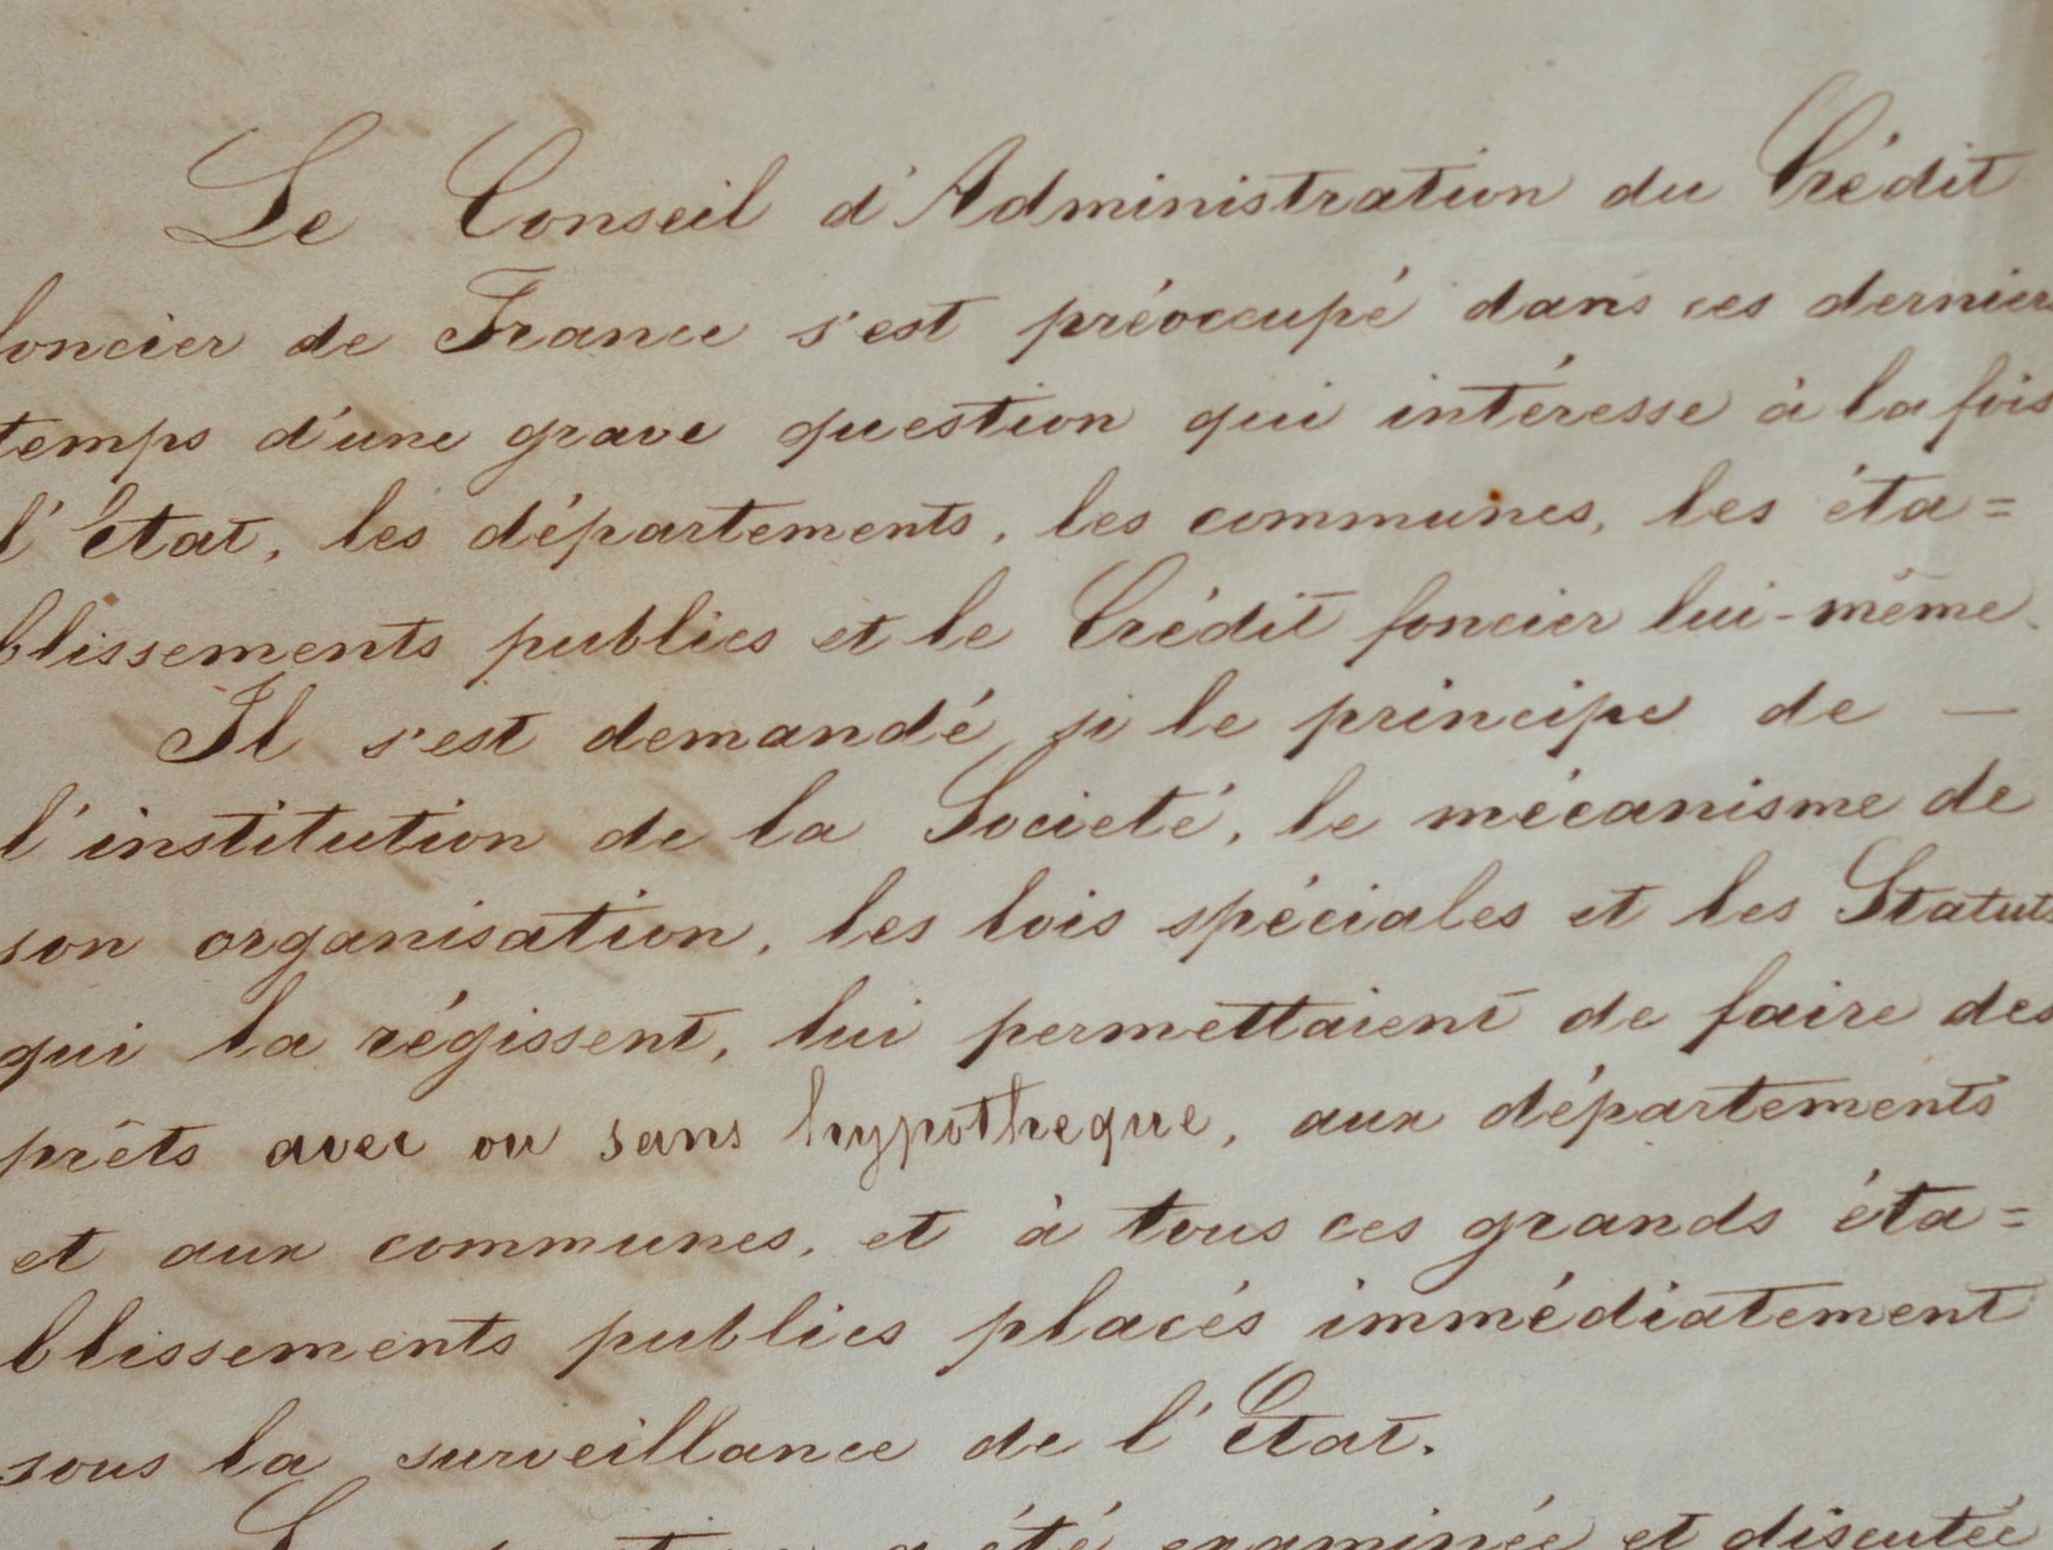 Le Conseil d'Administration du Crédit
foncier de France s'est préoccupé dans ces derniers
temps d'une grave question qui intéresse à la fois
l'État, les départements, les communes, les éta=
blissements publics et le Crédit foncier lui-même.
Il s'est demandé si le principe de —
l'institution de la Société, le mécanisme de
son organisation, les lois spéciales et les Statuts
qui la régissent, lui permettaient de faire des
prêts avec ou sans hypotheque, aux départements
et aux communes, et à tous ces grands éta=
blissements publics placés immédiatement
sous la surveillance de l'État.
a été examinée et discutée